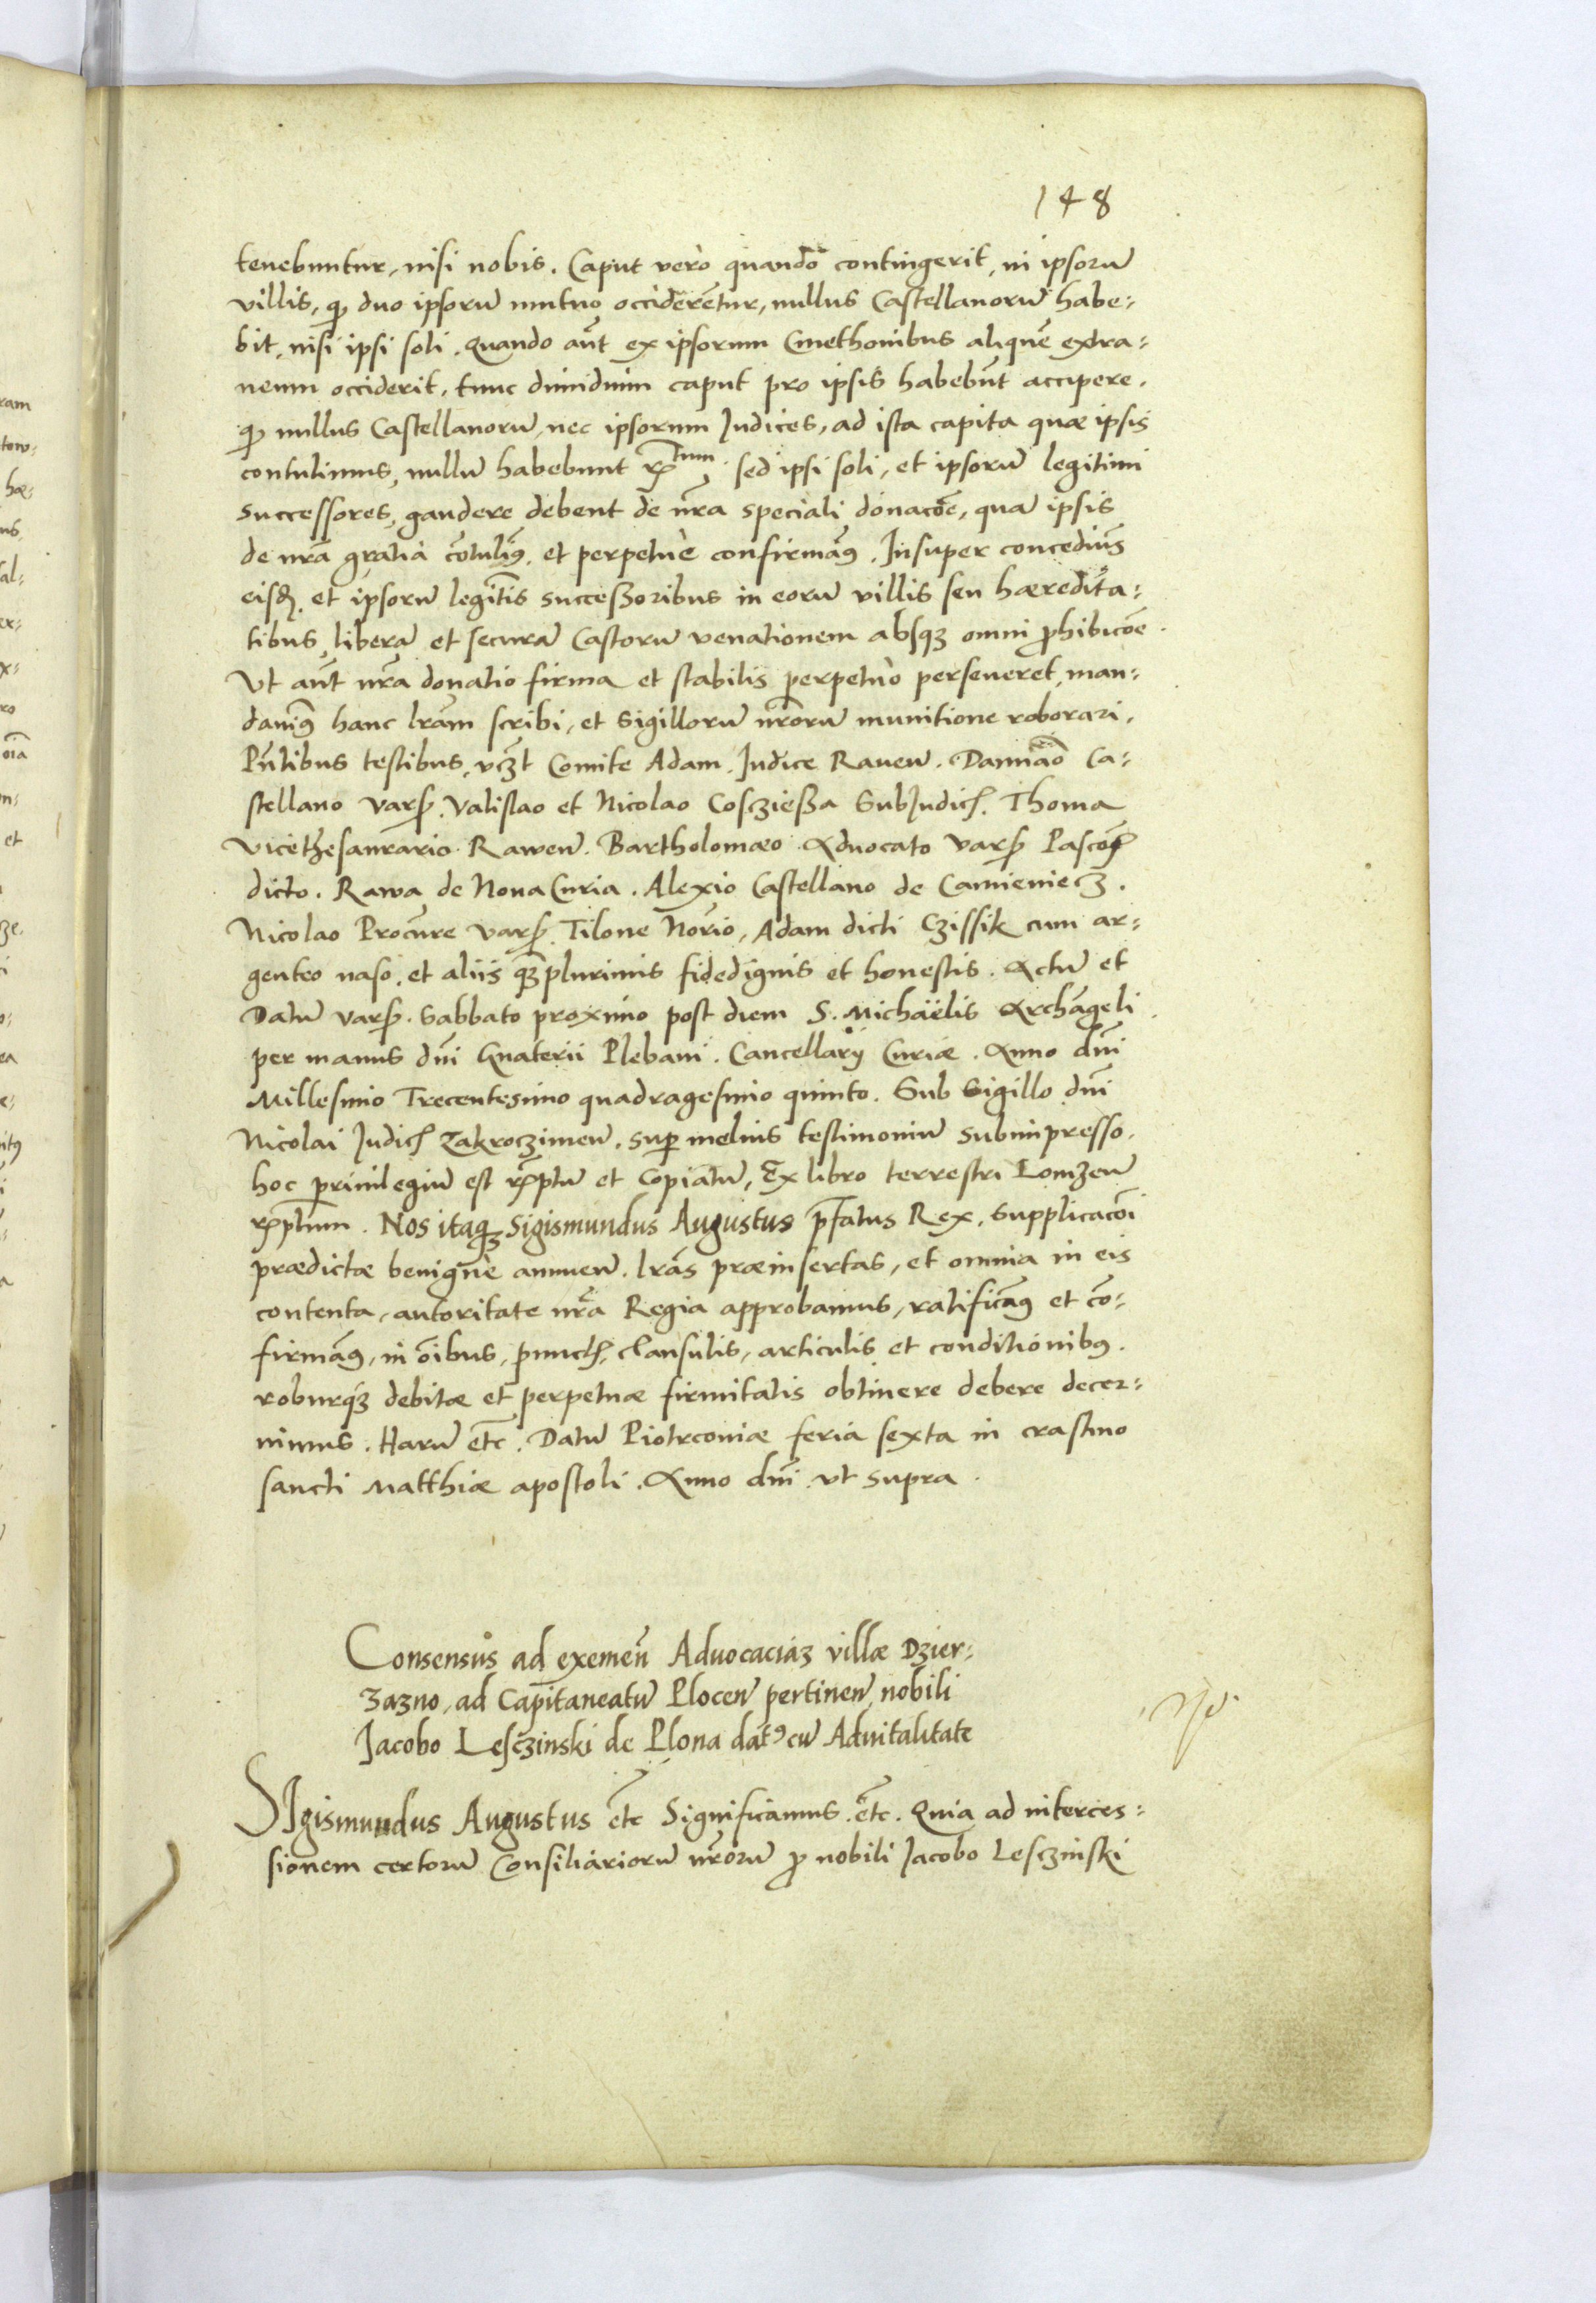 148
tenebuntur, nisi nobis. Caput verò quandō contingerit, in ipsorū
villis, ꝙ duo ipsorū mutuo occiderētur, nullus Castellanorū habe⸗
bit, nisi ipsi soli. Quando aūt ex ipsorum Cmethonibus aliquē extra⸗
neum occiderit, tunc dimidium caput pro ipsis habebūt accipere.
ꝙ nullus Castellanorū, nec ipsorum Judices, ad ista capita quæ ipsis
contulimus, nullū habebunt sed ipsi soli, et ipsorū legitimi
successores, gaudere debent de nr̄a speciali donacōe, quā ipsis
de nr̄a gratia cōtulim9, et perpetuè confirmām9. Insuper concedim9
eisdē et ipsorū legitīis successoribus in eorū villis seu hæredita⸗
tibus, liberā et securā Castorū venationem absqȝ omni ꝓhibicōe.
Vt aūt nr̄a donatio firma et stabilis perpetuò perseueret, man⸗
dauim9 hanc lr̄am scribi, et Sigillorū nr̄orū munitione roborari.
Pn̄tibus testibus, vcȝt Comite Adam, Judice Rauen̄. Damiāo Ca⸗
stellano Varsꝭ. Valislao et Nicolao Coscziessa SubJudicꝭ. Thoma
Vicethesaurario Rawen̄. Bartholomæo Aduocato Varsꝭ
dicto. Rawa de Noua Curia. Alexio Castellano de Camieniecz.
Nicolao Procūre Varsꝭ. Tilone Nōrio, Adam dicti Czissik cum ar⸗
genteo naso, et aliis qȝplurimis fidedignis et honestis. Actū et
Datū Varsꝭ. Sabbato proximo post diem S. Michaëlis Archāgeli
per manus dn̄i Gnaterii Plebani. Cancellarÿ Curiæ. Anno dn̄i
Millesimo Trecentesimo quadragesimo quinto. Sub Sigillo dn̄i
Nicolai Judicꝭ Zakroczimen̄. suꝑ melius testimoniū subimpresso.
hoc priuilegiū est rēptū et Copiatū, Ex libro terrestri Lomzen̄
rēptum. Nos itaqȝ Sigismundus Augustus p̄fatus Rex, Supplicacōi
prædictæ benignè annuen̄. lr̄as præinsertas, et omnia in eis
contenta, autoritate nr̄a Regia approbamus, ratificām9 et cō⸗
firmām9, in oībus, punctꝭ, clausulis, articulis et conditionib9.
roburqȝ debitæ et perpetuæ firmitatis obtinere debere decer⸗
nimus. Harū etc̄. Datū Piotrconiæ feria sexta in crastino
sancti Matthiæ apostoli. Anno dn̄i vt supra.
Consensus ad exemen̄ Aduocaciaȝ villæ Dzier⸗
zazno, ad Capitaneatū Plocen̄ pertinen̄ nobili
Jacobo Lesczinski de Plona dat9 cū Aduitalitate
SIgismundus Augustus etc̄ Significamus etc̄. Quia ad interces⸗
sionem certorū Consiliariorū nr̄orū ꝓ nobili Jacobo Lesczinski